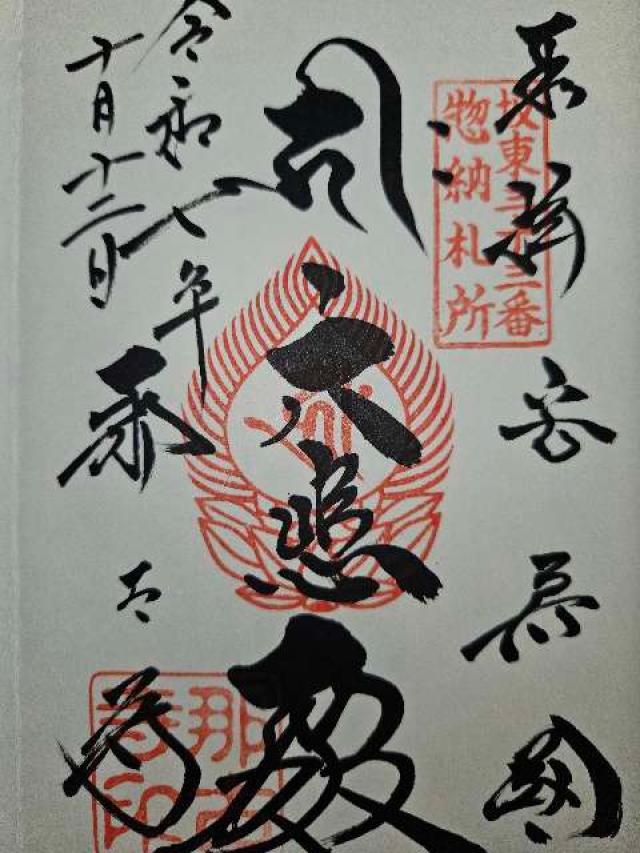 坂東三十三番
惣納札所
奉拝
安房国
大悲殿
令和七年
十月十二日
那古寺
那古寺印